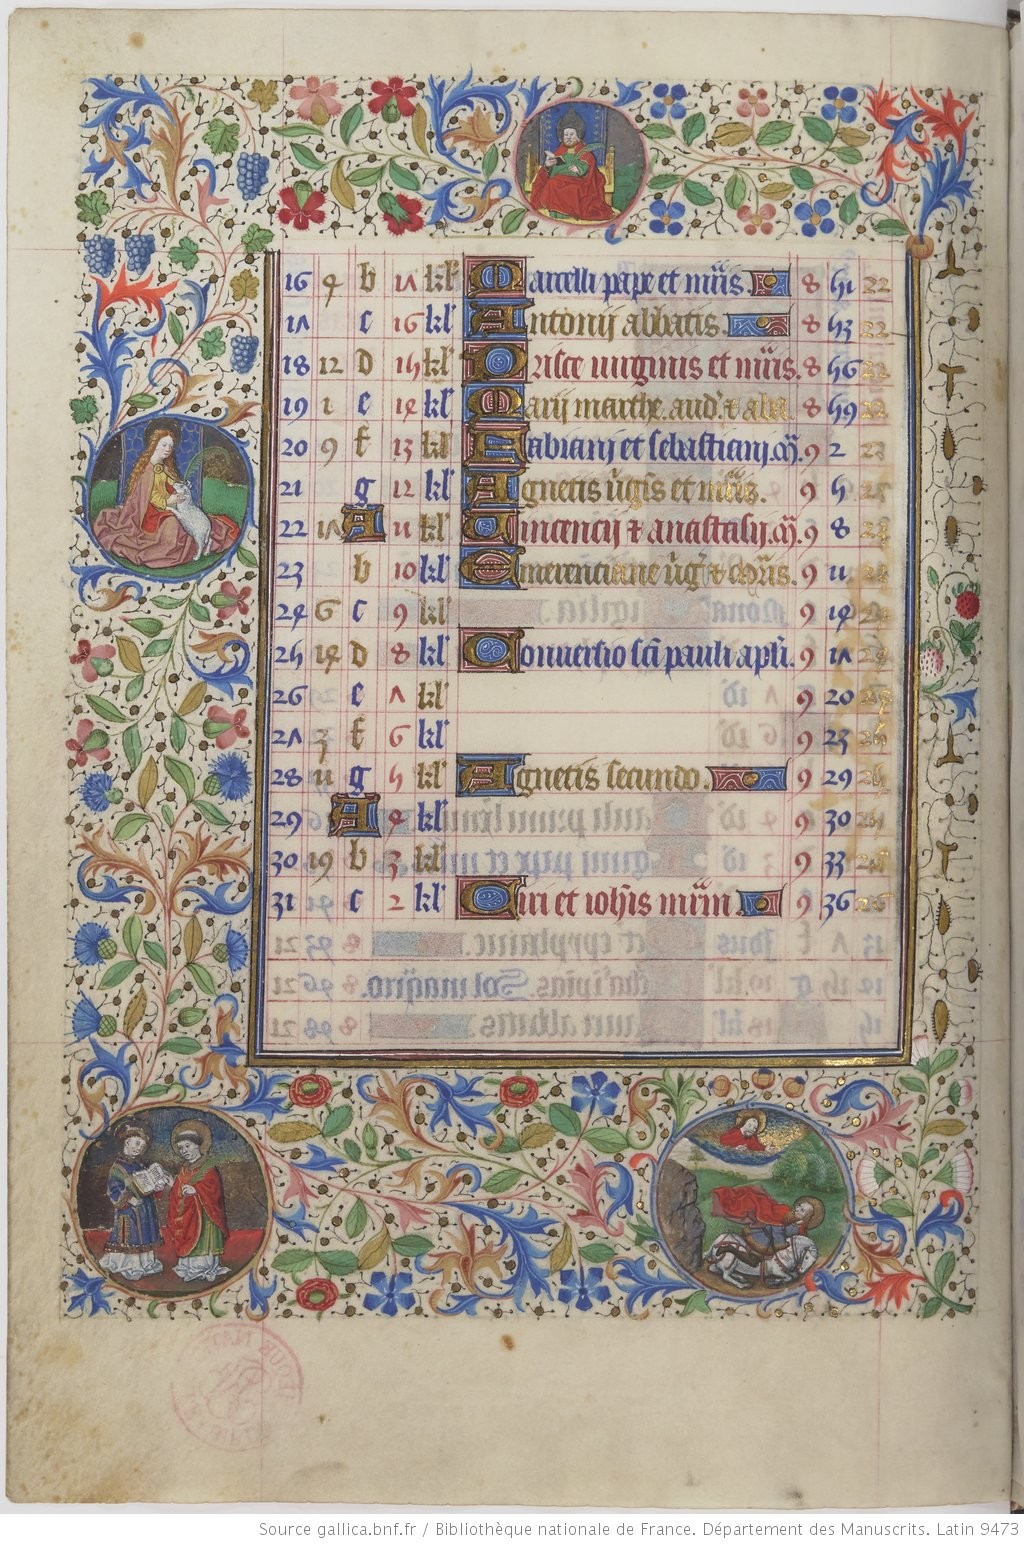 16 9 b 17 kl Marcelli pape et mris 8 51 22
17 c 16 kl Antonij abbatis. 8 53 22
18 12 D 15 kl Prisce uirginis et mris. 8 56 22
19 1 e 14 kl Marij marthe. aud. & aba. 8 59 22
20 9 f 13 kl Fabiani et sebastiani. 9 2 23
21 g 12 kl Agnetis ugis et mris. 9 5
22 17 A 11 kl Uincencij & anastasij. 9 8
23 b 10 kl Emerenciane ug & 9 11
24 6 c 9 kl 9 14
25 14 D 8 kl Conuersio sci pauli apli. 9 17
26 e 7 kl 9 20
27 3 f 6 kl 9 23
28 11 g 5 kl Agnetis secundo. 9 29
29 A 4 kl 9 30
30 19 b 3 kl 9 33
31 c 2 kl Ciri et iohis mrm. 9 36
Source gallica.bnf.fr / Bibliothèque nationale de France. Département des Manuscrits. Latin 9473